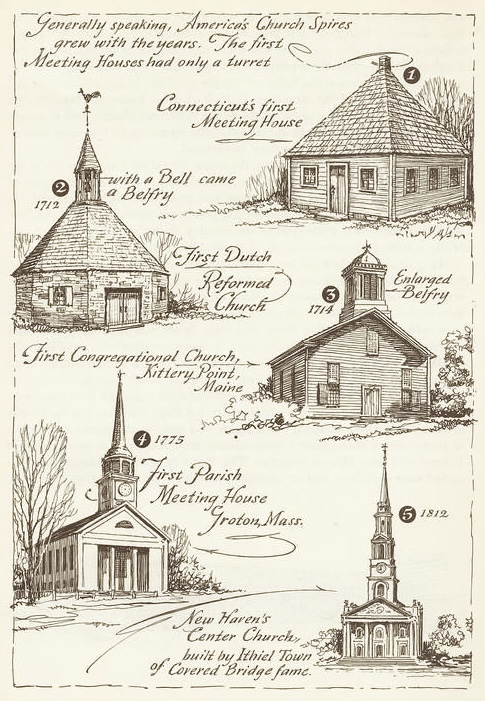 Generally speaking, America's Church Spires
grew with the years. The first
Meeting Houses had only a turret
1
Connecticut's first
Meeting House
2
1712
with a Bell came
a Belfry
First Dutch
Reformed
Church
3
1714
Enlarged
Belfry
First Congregational Church,
Kittery Point,
Maine
4 1775
First Parish
Meeting House
Groton, Mass.
5 1812
New Haven's
Center Church,
built by Ithiel Town
of Covered Bridge fame.